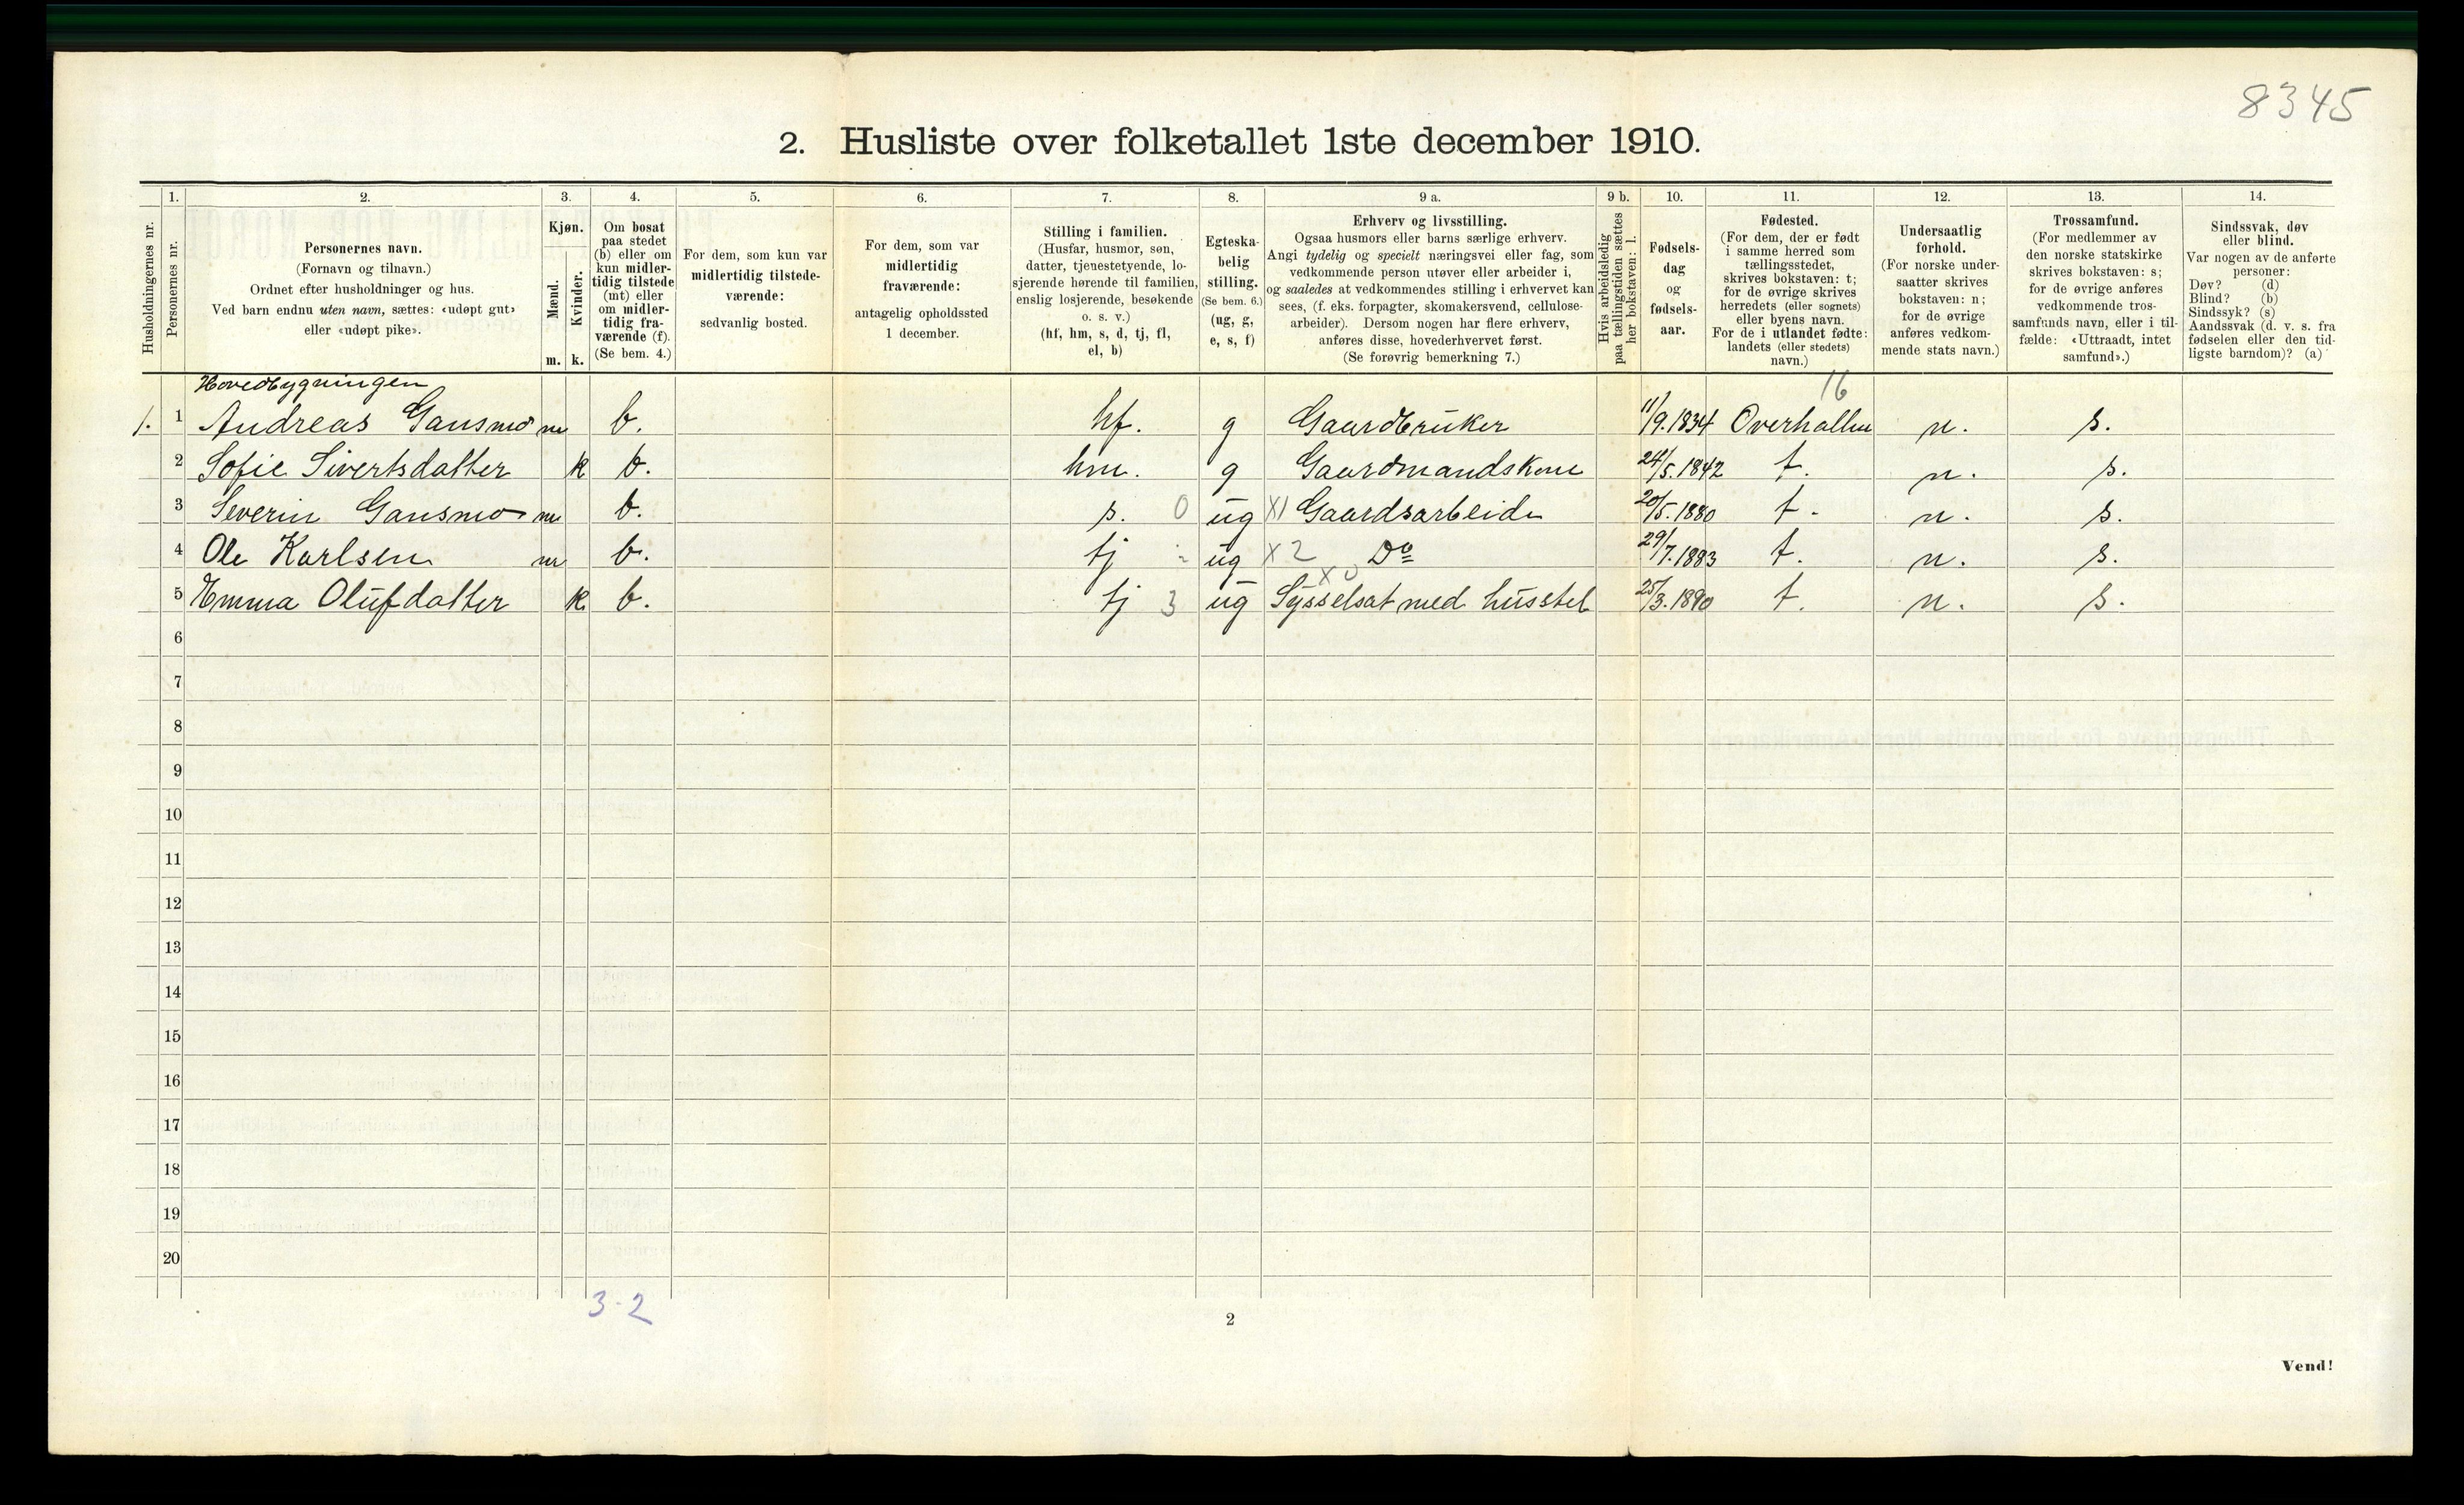 8345
2. Husliste over folketallet 1ste december 1910.
1. 2. 3. 4. 5. 6. 7. 8. 9 a. 9 b. 10. 11. 12. 13. 14.
Husholdningernes nr.
Personernes nr.
Personernes navn.
(Fornavn og tilnavn.)
Ordnet efter husholdninger og hus.
Ved barn endnu uten navn, sættes: «udøpt gut»
eller «udøpt pike».
Kjøn.
Mænd.
Kvinder.
m. k.
Om bosat
paa stedet
(b) eller om
kun midler-
tidig tilstede
(mt) eller
om midler-
tidig fra-
værende (f).
(Se bem. 4.)
For dem, som kun var
midlertidig tilstede-
værende:
sedvanlig bosted.
For dem, som var
midlertidig
fraværende:
antagelig opholdssted
1 december.
Stilling i familien.
(Husfar, husmor, søn,
datter, tjenestetyende, lo-
sjerende hørende til familien,
enslig losjerende, besøkende
o. s. v.)
(hf, hm, s, d, tj, fl,
el, b)
Egteska-
belig
stilling.
(Se bem. 6.)
(ug, g,
e, s, f)
Erhverv og livsstilling.
Ogsaa husmors eller barns særlige erhverv.
Angi tydelig og specielt næringsvei eller fag, som
vedkommende person utøver eller arbeider i,
og saaledes at vedkommendes stilling i erhvervet kan
sees, (f. eks. forpagter, skomakersvend, cellulose-
arbeider). Dersom nogen har flere erhverv,
anføres disse, hovederhvervet først.
(Se forøvrig bemerkning 7.)
Hvis arbeidsledig
paa tællingstiden sættes
her bokstaven: l.
Fødsels-
dag
og
fødsels-
aar.
Fødested.
(For dem, der er født
i samme herred som
tællingsstedet,
skrives bokstaven: t;
for de øvrige skrives
herredets (eller sognets)
eller byens navn.
For de i utlandet fødte:
landets (eller stedets)
navn.)
Undersaatlig
forhold.
(For norske under-
saatter skrives
bokstaven: n;
for de øvrige
anføres vedkom-
mende stats navn.)
Trossamfund.
(For medlemmer av
den norske statskirke
skrives bokstaven: s;
for de øvrige anføres
vedkommende tros-
samfunds navn, eller i til-
fælde: «Uttraadt, intet
samfund».)
Sindssvak, døv
eller blind.
Var nogen av de anførte
personer:
Døv? (d)
Blind? (b)
Sindssyk? (s)
Aandssvak (d. v. s. fra
fødselen eller den tid-
ligste barndom)? (a)
Hovedbygningen
16
1. 1 Andreas Gansmo m b. hf. g Gaardbruker 11/9.1834 Overhallen n. s.
2 Sofie Sivertsdatter k b. hm. g Gaardmandskone 24/5.1842 t. n. s.
3 Severin Gansmo m b. s. 0 ug X1 Gaardsarbeide 20/5.1880 t. n. s.
4 Ole Karlsen m b. tj - ug X2 Do 29/7.1883 t. n. s.
X0
5 Emma Olufdatter k. b. tj 3 ug Sysselsat med husstel 25/3.1890 t. n. s.
6
7
8
9
10
11
12
13
14
15
16
17
18
19
20
3-2
2
Vend!